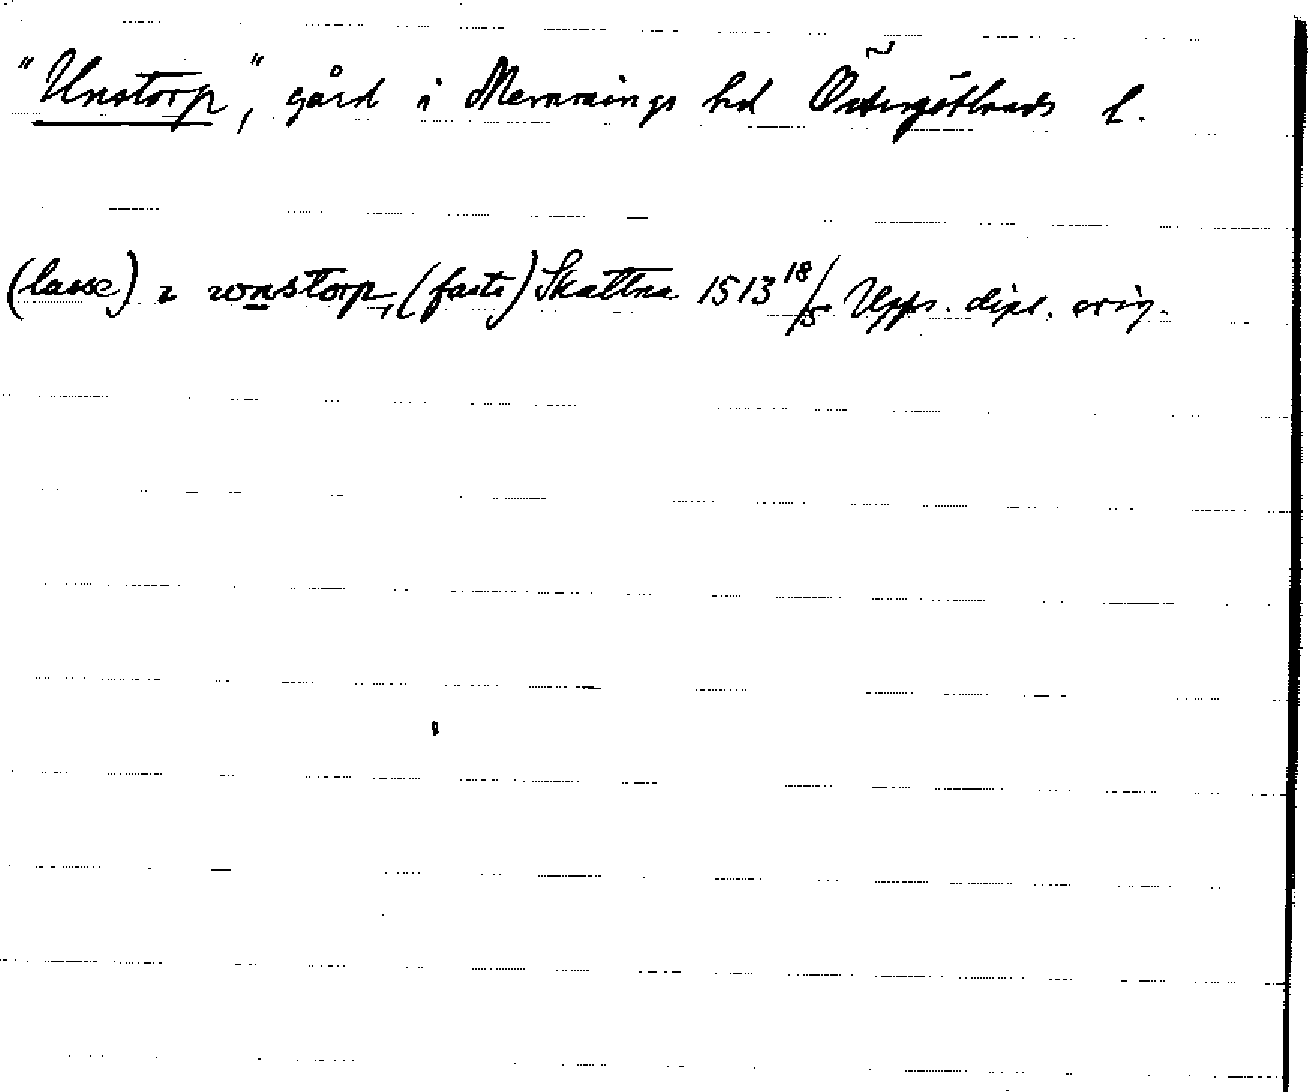 "Unstorp", gård i Memmings hd Östergötlands l.
(lasse) i wnstorp, (faste) Skattna 1513 18/5 Upps. dipl. orig.